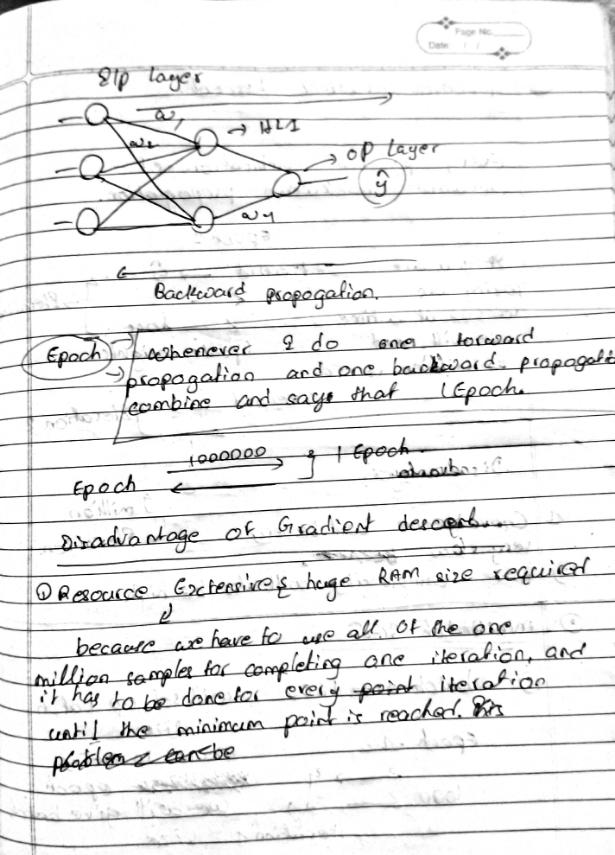 Page No.
Date: / /
I/p layer
w1
w2
→ HL1
→ OP layer
ŷ
w4
Backward propogation.
Epoch → whenever I do one forward
propogation and one backward propogati
combine and says that 1 Epoch.
1000000 } 1 Epoch
Epoch
Disadvantage of Gradient descent
① Resource Extensive { huge RAM size required
because we have to use all of the one
million samples for completing one iteration, and
it has to be done for every point iteration
until the minimum point is reached. This
problem can be